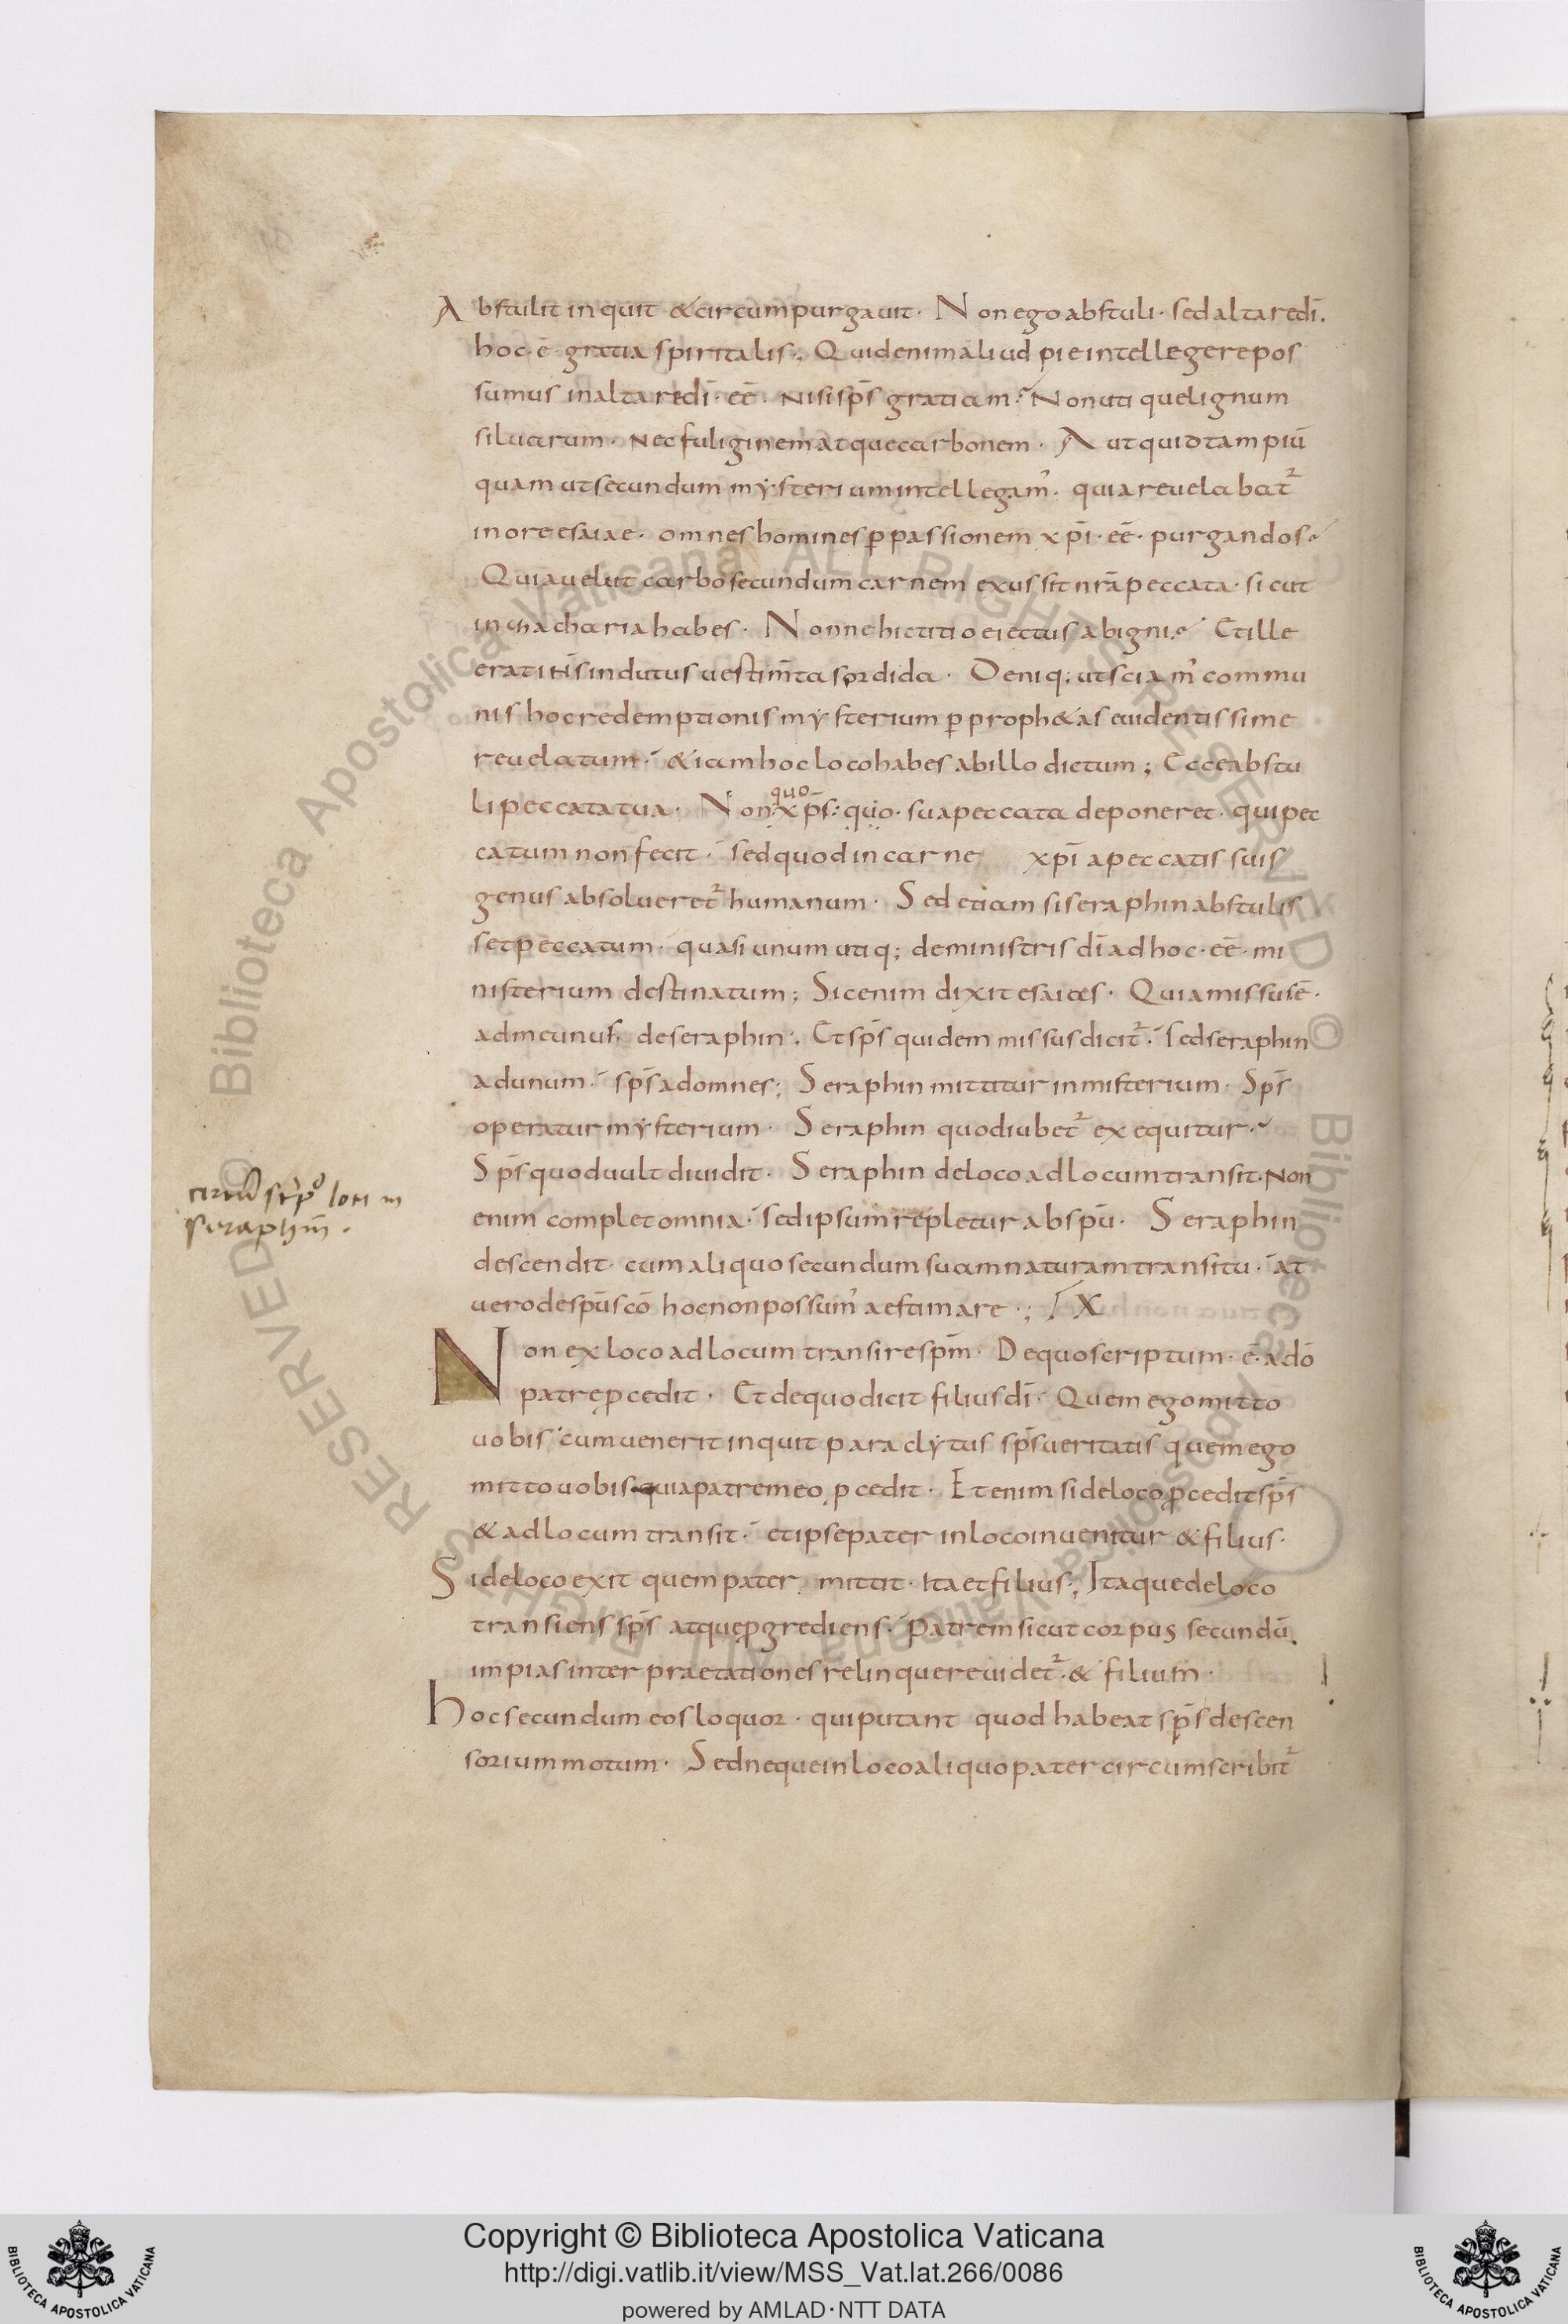 Abstulit inquit & circumpurgauit · Non ego abstuli · sed altare dī ·
hoc · ē · gratia spiritalis ·, Quid enim aliud pie intellegere pos
sumus in altare dī · eē · nisi sp̄s gratiam · Non utique lignum
siluarum · nec fuliginem atque carbonem · Aut quid tam piū
quam ut secundum mẏsterium intellegam᾽ · quia reuelabat᾽
in ore esaiae · omnes homines ꝑ passionem xp̄i · eē · purgandos ·
Quia uelut carbo secundum carnem exussit nr̄a peccata · sicut
in zacharia habes · Nonne hic titio eiectus ab igni · Et ille
erat ih̄s indutus uestim̄ta sordida · Deniq; ut sciam᾽ commu
nis hoc redemptionis mẏsterium ꝑ proph&as euidentissime
reuelatum · & iam hoc loco habes ab illo dictum ; Ecce abstu
li peccata tua · Non quo xp̄s : quo · sua peccata deponeret · qui pec
catum non fecit · sed quod in carne xp̄i a peccatis suis
genus absolueret᾽ humanum · Sed etiam si seraphin abstulis
set peccatum · quasi unum utiq; de ministris dī ad hoc · eē · mi
nisterium destinatum ; Sic enim dixit esaias · Quia missus ē ·
ad me unus · de seraphin ·, Et sp̄s quidem missus dicit᾽ · sed seraphin
ad unum · sp̄s ad omnes ; Seraphin mittitur in misterium · Sp̄s
operatur mẏsterium · Seraphin quod iubet᾽ exequitur ·
Sp̄s quod uult diuidit · Seraphin de loco ad locum transit · Non
enim complet omnia · sed ipsum repletur ab sp̄u · Seraphin
descendit · cum aliquo secundum suam naturam transitu · at
uero de sp̄u scō hoc non possum᾽ aestimare ·; X
Non ex loco ad locum transire sp̄m · De quo scriptum · ē · a dō
patre ꝓcedit · Et de quo dicit filius dī · Quem ego mitto
uobis cum uenerit inquit paraclẏtus sp̄s ueritatis quem ego
mitto uobis quia patre meo ꝓcedit · Etenim si de loco ꝓcedit sp̄s
& ad locum transit · et ipse pater in loco inuenitur & filius ·
Si de loco exit quem pater mittit · Ita et filius ·, Itaque de loco
transiens sp̄s atque ꝓgrediens · Patrem sicut corpus secundū
impias inter praetationes relinquere uidet᾽ · & filium ·
Hoc secundum eos loquor · qui putant quod habeat sp̄s descen
sorium motum · Sed neque in loco aliquo pater circumscribit᾽
seraphin̄ ·
RESERVED © Biblioteca Apostolica Vaticana ALL RIGHTS RESERVED © Biblioteca Apostolica Vaticana ALL RIGHTS
Copyright © Biblioteca Apostolica Vaticana
http://digi.vatlib.it/view/MSS_Vat.lat.266/0086
powered by AMLAD·NTT DATA
BIBLIOTECA APOSTOLICA VATICANA
BIBLIOTECA APOSTOLICA VATICANA